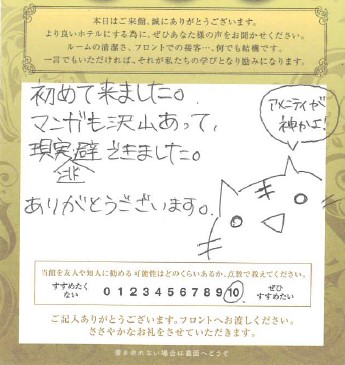 本日はご来館、誠にありがとうございます。
より良いホテルにする為に、ぜひあなた様の声をお聞かせください。
ルームの清潔さ、フロントでの接客…、何でも結構です。
一言でもいただければ、それが私たちの学びとなり励みになります。
初めて来ました。
マンガも沢山あって、
現実逃避できました。
ありがとうございます。
アメニティが
神かよ!
当館を友人や知人に勧める可能性はどのくらいあるか、点数で教えてください。
すすめたくない 0 1 2 3 4 5 6 7 8 9 10 ぜひすすめたい
ご記入ありがとうございます。フロントへお渡しください。
ささやかなお礼をさせていただきます。
書ききれない場合は裏面へどうぞ